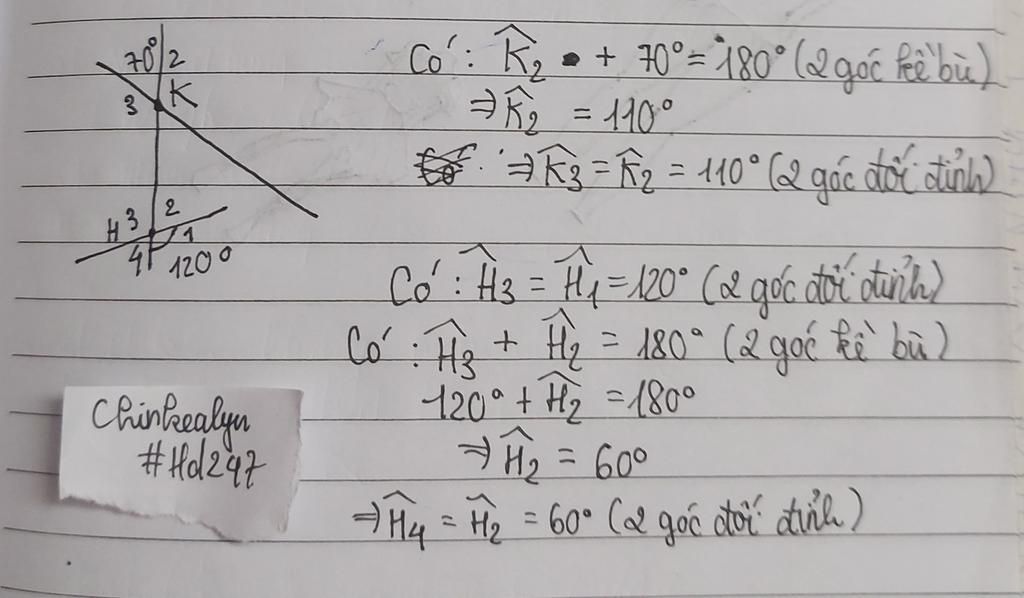 70° 2
3 K
H 3 2
4 1
120°
Có: K̂₂ + 70° = 180° (2 góc kề bù)
⇒ K̂₂ = 110°
⇒ K̂₃ = K̂₂ = 110° (2 góc đối đỉnh)
Có: Ĥ₃ = Ĥ₁ = 120° (2 góc đối đỉnh)
Có: Ĥ₃ + Ĥ₂ = 180° (2 góc kề bù)
120° + Ĥ₂ = 180°
⇒ Ĥ₂ = 60°
⇒ Ĥ₄ = Ĥ₂ = 60° (2 góc đối đỉnh)
#Hd247